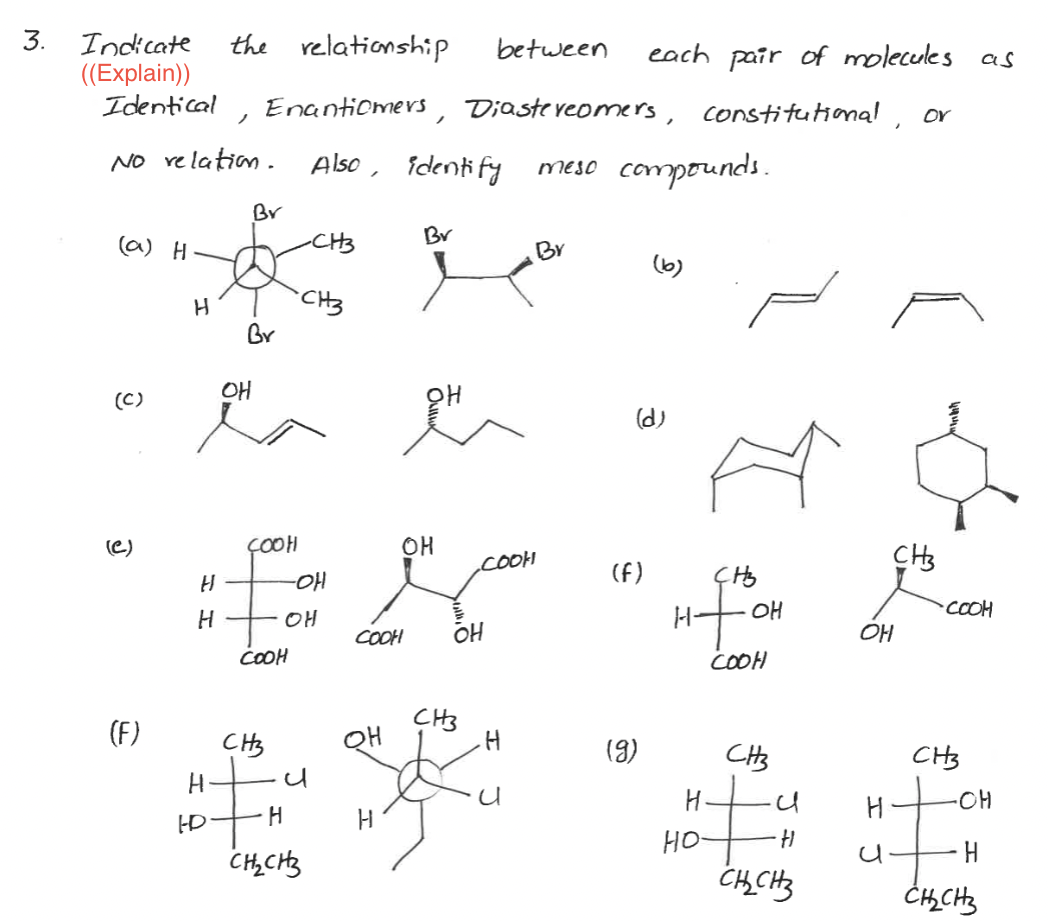 3. Indicate the relationship between each pair of molecules as
((Explain))
Identical, Enantiomers, Diastereomers, constitutional, or
No relation. Also, identify meso compounds.
(a) Br
H CH3
H CH3
Br
Br Br
(b)
(c) OH
OH
(d)
(e) COOH
H OH
H OH
COOH
OH COOH
COOH OH
(f) CH3
H OH
COOH
CH3
OH COOH
(F) CH3
H Cl
HO H
CH2CH3
CH3
OH H
H Cl
(g) CH3
H Cl
HO H
CH2CH3
CH3
H OH
Cl H
CH2CH3